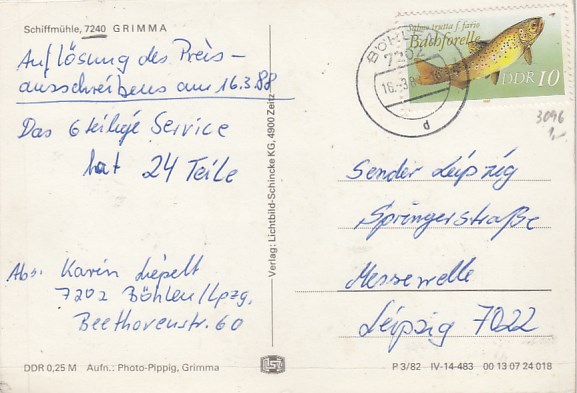 Schiffmühle, 7240 GRIMMA
Auflösung des Preis-
ausschreibens am 16.3.88
Das 6teilige Service
hat 24 Teile
Abs. Karin Liepelt
7202 Böhlen/Lpzg.
Beethovenstr. 60
DDR 0,25 M Aufn.: Photo-Pippig, Grimma
Verlag: Lichtbild-Schincke KG, 4900 Zeitz
Salmo trutta f. fario
Bachforelle
DDR 10
BÖHLEN
7202
16.-3.8
d
3096
1,-
Sender Leipzig
Springerstraße
Messewelle
Leipzig 7022
P 3/82 IV-14-483 00 13 07 24 018